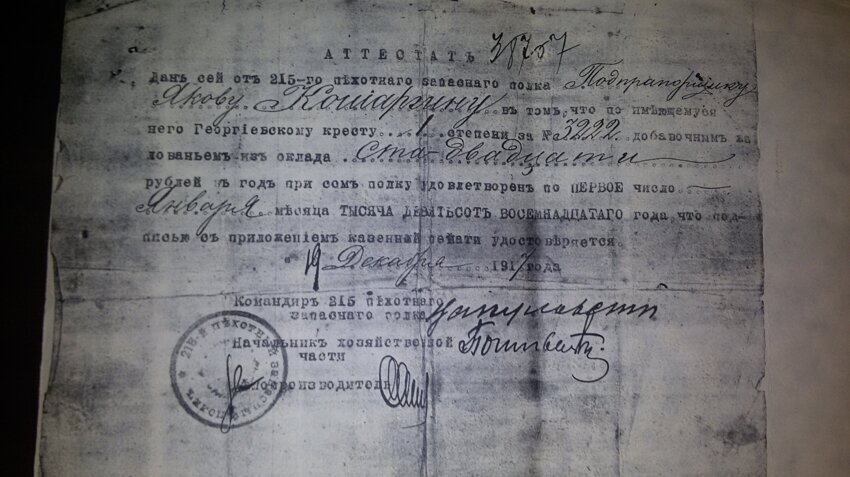 АТТЕСТАТЪ 38757
Данъ сей отъ 215-го пѣхотнаго запаснаго полка Подпрапорщику
Якову Кошаргину въ томъ, что по имѣющемуся
него Георгіевскому кресту 1 степени за № 3222 добавочнымъ жа
лованьемъ изъ оклада ста двадцати
рублей въ годъ при семъ полку удовлетворенъ по ПЕРВОЕ число
Января мѣсяца ТЫСЯЧА ДЕВЯТЬСОТЪ ВОСЕМНАДЦАТАГО года что под
писью съ приложеніемъ казенной печати удостовѣряется.
19 Декабря 1917 года
Командиръ 215 пѣхотнаго
запаснаго полка
Начальникъ хозяйственной
части
Дѣлопроизводитель
* 215-й ПѢХОТНЫЙ ЗАПАСНЫЙ ПОЛКЪ